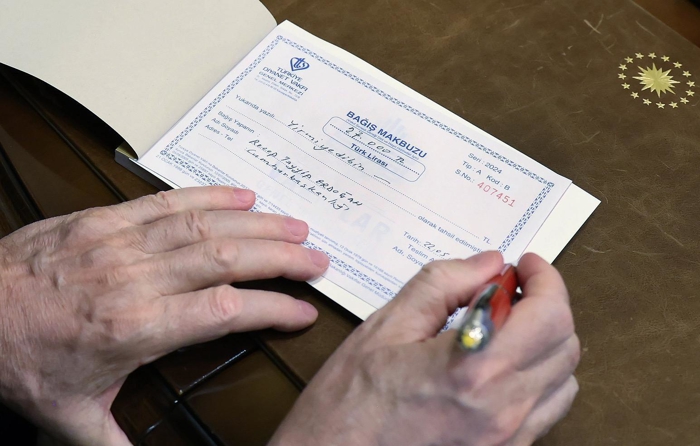 TÜRKİYE
DİYANET VAKFI
GENEL MERKEZİ
BAĞIŞ MAKBUZU
27.000 ₺
Türk Lirası
Seri : 2024
Tip : A Kod : B
S.No.: 407451
Yukarıda yazılı
Yirmiyedibin
TL.
olarak tahsil edilmiştir.
Bağış Yapanın
Adı Soyadı
Recep Tayyip ERDOĞAN
Adres - Tel
Cumhurbaşkanlığı
Tarih:
Teslim
Adı, Soyadı